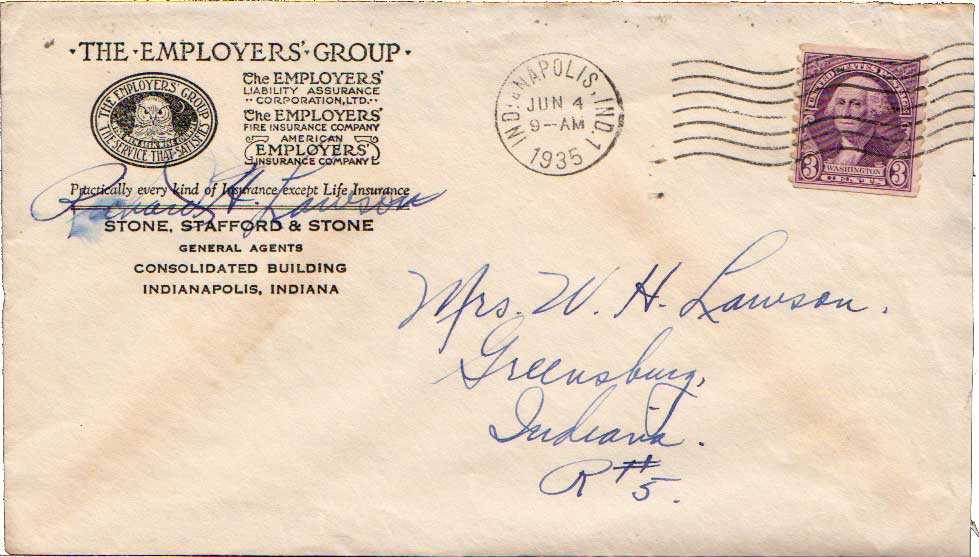 ·THE·EMPLOYERS'·GROUP·
THE EMPLOYERS' GROUP
THE SERVICE THAT SATISFIES
The EMPLOYERS'
LIABILITY ASSURANCE
··CORPORATION, LTD.··
The EMPLOYERS'
FIRE INSURANCE COMPANY
AMERICAN
EMPLOYERS'
INSURANCE COMPANY
Practically every kind of Insurance except Life Insurance
Richard H. Lawson
STONE, STAFFORD & STONE
GENERAL AGENTS
CONSOLIDATED BUILDING
INDIANAPOLIS, INDIANA
INDIANAPOLIS, IND. 1
JUN 4
9–AM
1935
UNITED STATES POSTAGE
3 WASHINGTON 3
CENTS
Mrs. W. H. Lawson.
Greensburg,
Indiana.
R#5.